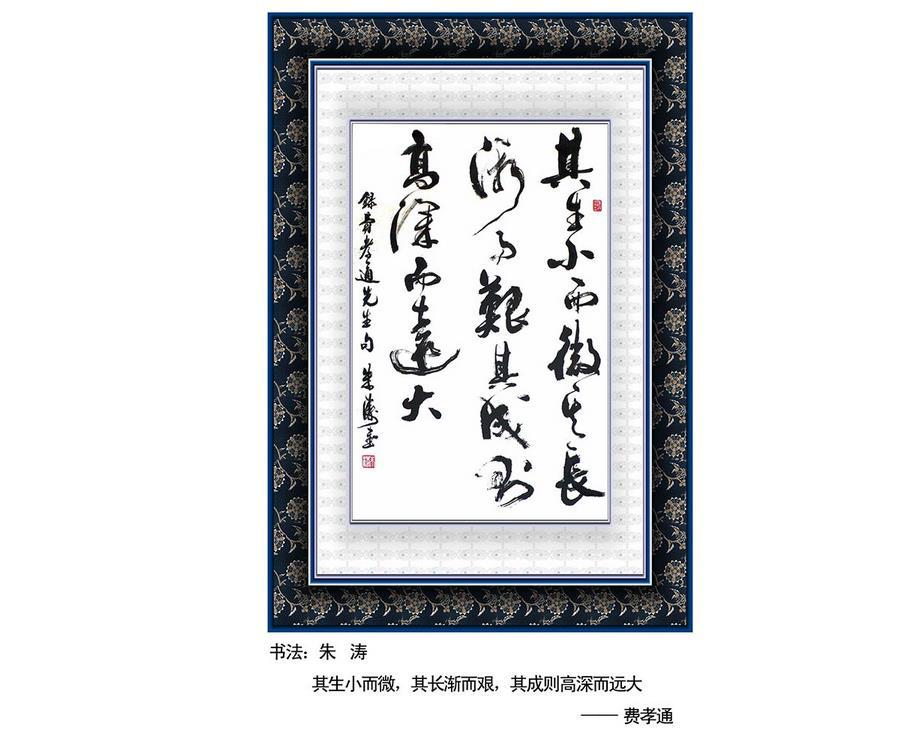 其生小而微其长
渐而艱其成则
高深而远大
録费孝通先生句 朱涛书
书法：朱　涛
其生小而微，其长渐而艰，其成则高深而远大
—— 费孝通